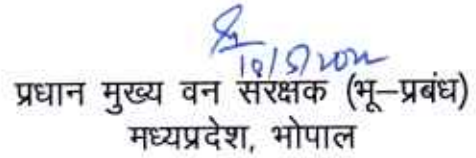 10/5/2022
प्रधान मुख्य वन संरक्षक (भू–प्रबंध)
मध्यप्रदेश, भोपाल